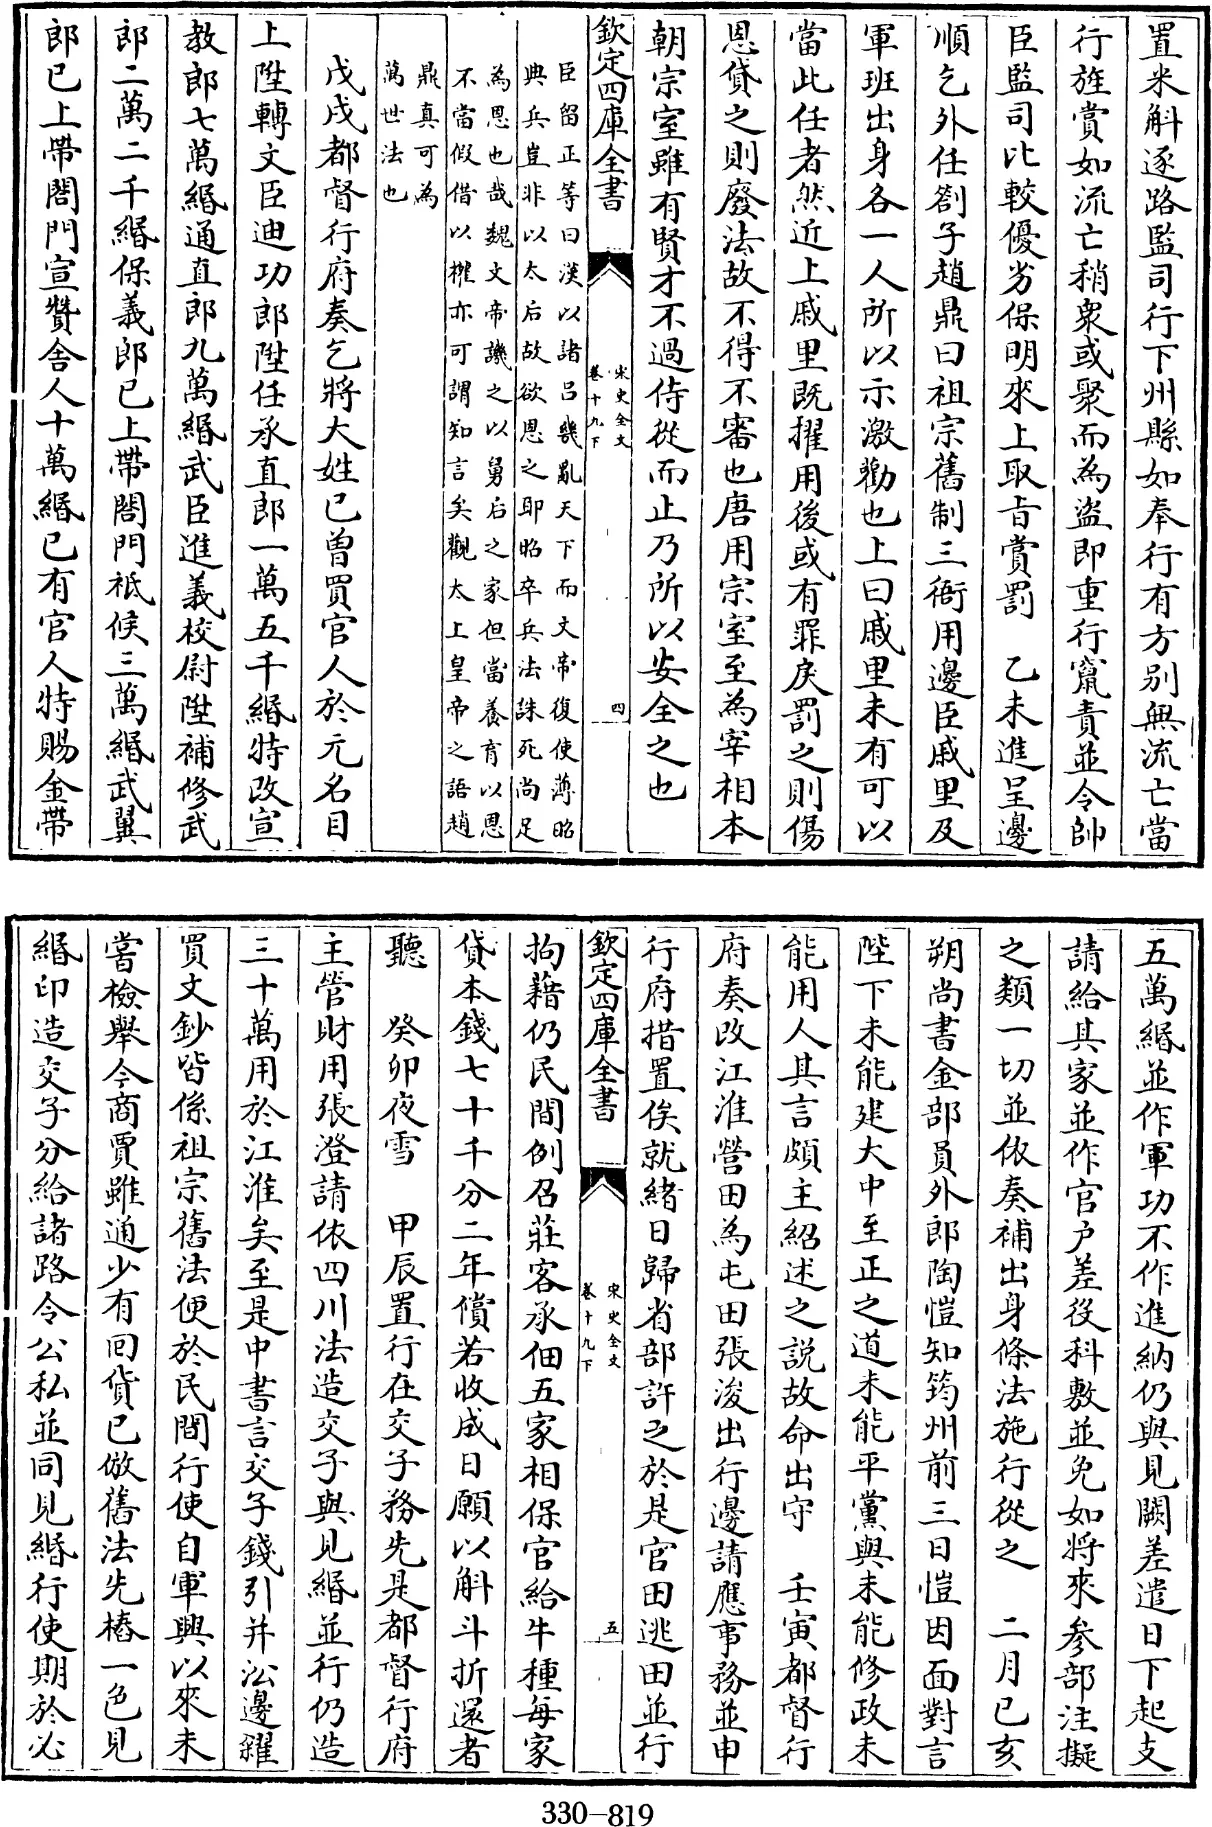 置米斛逐路監司行下州縣如奉行有方别無流亡當
行旌賞如流亡稍衆或聚而為盜即重行竄責並令帥
臣監司比較優劣保明來上取旨賞罰　乙未進呈邊
順乞外任劄子趙鼎曰祖宗舊制三衙用邊臣戚里及
軍班出身各一人所以示激勸也上曰戚里未有可以
當此任者然近上戚里既擢用後或有罪戾罰之則傷
恩貸之則廢法故不得不審也唐用宗室至為宰相本
朝宗室雖有賢才不過侍從而止乃所以安全之也
欽定四庫全書
宋史全文
卷十九下
四
臣留正等曰漢以諸吕幾亂天下而文帝復使薄昭
典兵豈非以太后故欲恩之耶昭卒兵法誅死尚足
為恩也哉魏文帝譏之以舅后之家但當養育以恩
不當假借以權亦可謂知言矣觀太上皇帝之語趙
鼎真可為
萬世法也
戊戌都督行府奏乞將大姓已曾買官人於元名目
上陞轉文臣迪功郎陞任承直郎一萬五千緡特改宣
教郎七萬緡通直郎九萬緡武臣進義校尉陞補修武
郎二萬二千緡保義郎已上帶閤門祗候三萬緡武翼
郎已上帶閤門宣贊舍人十萬緡已有官人特賜金帶
五萬緡並作軍功不作進納仍與見闕差遣日下起支
請給其家並作官户差役科敷並免如將來參部注擬
之類一切並依奏補出身條法施行從之　二月己亥
朔尚書金部員外郎陶愷知筠州前三日愷因面對言
陛下未能建大中至正之道未能平黨與未能修政未
能用人其言頗主紹述之説故命出守　壬寅都督行
府奏改江淮營田為屯田張浚出行邊請應事務並申
行府措置俟就緒日歸省部許之於是官田逃田並行
欽定四庫全書
宋史全文
卷十九下
五
拘藉仍民間例召莊客承佃五家相保官給牛種每家
貸本錢七十千分二年償若收成日願以斛斗折還者
聽　癸卯夜雪　甲辰置行在交子務先是都督行府
主管財用張澄請依四川法造交子與見緡並行仍造
三十萬用於江淮矣至是中書言交子錢引并沿邊糴
買文鈔皆係祖宗舊法便於民間行使自軍興以來未
嘗檢舉令商賈雖通少有回貨已倣舊法先樁一色見
緡印造交子分給諸路令公私並同見緡行使期於必
330-819